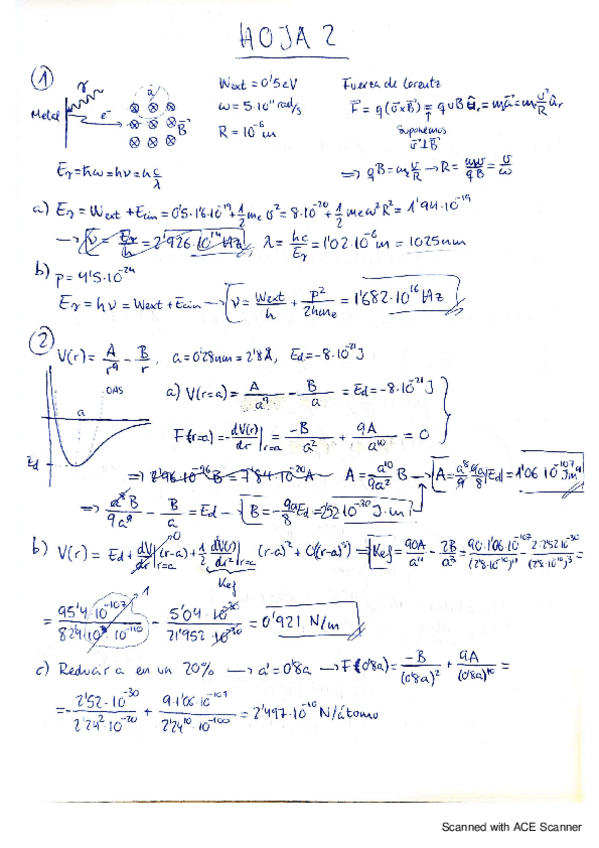 HOJA 2
① γ
Metal e⁻ a B⃗
Wext = 0'5 eV
ω = 5·10¹¹ rad/s
R = 10⁻⁶ m
Fuerza de Lorentz
F⃗ = q(v⃗×B⃗) = qvB û_r = ma⃗ = m v²/R û_r
Suponemos v⃗⊥B⃗
E_γ = ħω = hν = h c/λ
⇒ qB = m v/R → R = mv/qB = v/ω
a) E_γ = Wext + Ecin = 0'5·1'6·10⁻¹⁹ + 1/2 m_e v² = 8·10⁻²⁰ + 1/2 m_e ω²R² = 1'94·10⁻¹⁹
→ ν = E_γ/h = 2'926·10¹⁴ Hz λ = hc/E_γ = 1'02·10⁻⁶ m = 1025 nm
b) p = 4'5·10⁻²⁴
E_γ = hν = Wext + Ecin → ν = Wext/h + p²/2hm_e = 1'682·10¹⁶ Hz
② V(r) = A/r⁹ - B/r , a = 0'28 nm = 2'8 Å, Ed = -8·10⁻²¹ J
0'8a
a
Ed
a) V(r=a) = A/a⁹ - B/a = Ed = -8·10⁻²¹ J
F(r=a) = -dV(r)/dr |r=a = -B/a² + 9A/a¹⁰ = 0
⇒ 2'96·10⁻⁹⁶ B = 7'84·10⁻²⁰ A A = a¹⁰/9a² B → A = a⁸/9 9a/8 |Ed| = 1'06·10⁻¹⁰⁷ Jm⁹
⇒ a⁸B/9a⁹ - B/a = Ed → B = -9a/8 Ed = 2'52·10⁻³⁰ J·m
b) V(r) = Ed + dV/dr |r=a (r-a) + 1/2 d²V(r)/dr² |r=a (r-a)² + O((r-a)³) ⇒ Kef = 90A/a¹¹ - 2B/a³ = 90·1'06·10⁻¹⁰⁷/(2'8·10⁻¹⁰)¹¹ - 2·2'52·10⁻³⁰/(2'8·10⁻¹⁰)³ =
0
Kef
1
= 95'4·10⁻¹⁰⁷/82'4·10³·10⁻¹¹⁰ - 5'04·10⁻³⁰/21'952·10⁻³⁰ = 0'921 N/m
c) Reducir a en un 20% → a' = 0'8a → F(0'8a) = -B/(0'8a)² + 9A/(0'8a)¹⁰ =
= -2'52·10⁻³⁰/2'24²·10⁻²⁰ + 9·1'06·10⁻¹⁰⁷/2'24¹⁰·10⁻¹⁰⁰ = 2'497·10⁻¹⁰ N/átomo
Scanned with ACE Scanner